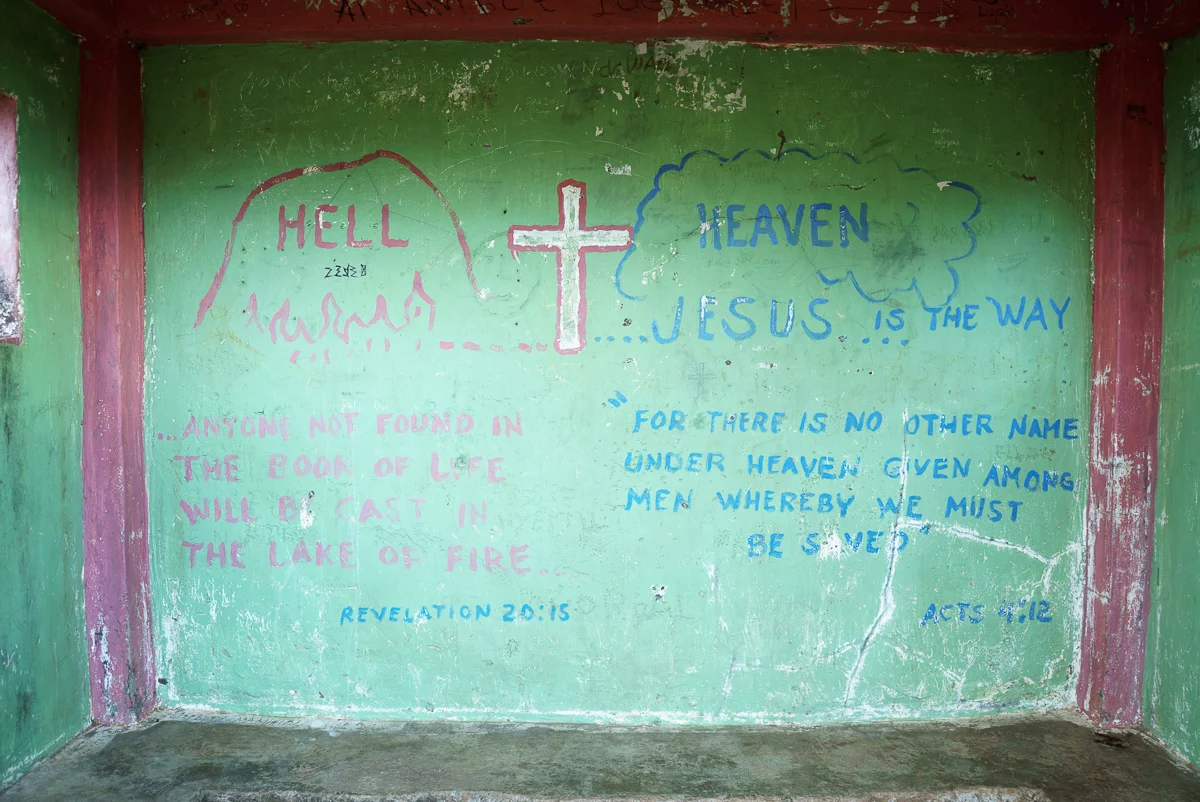 HELL
HEAVEN
....JESUS... IS THE WAY
...ANYONE NOT FOUND IN
THE BOOK OF LIFE
WILL BE CAST IN
THE LAKE OF FIRE...
REVELATION 20:15
"FOR THERE IS NO OTHER NAME
UNDER HEAVEN GIVEN AMONG
MEN WHEREBY WE MUST
BE SAVED"
ACTS 4:12